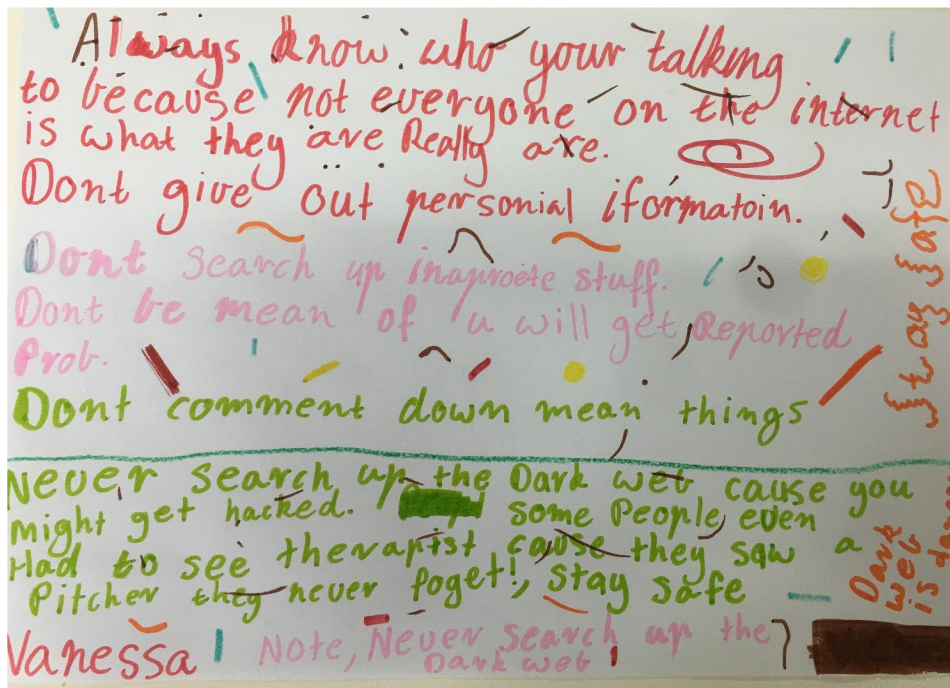 Always know who your talking
to because not everyone on the internet
is what they are Really are.
Dont give out personial iformatoin.
Dont search up inaproete stuff.
Dont be mean of u will get Reported
Prob.
Dont comment down mean things
Never search up the Dark web cause you
might get hacked. some People even
Had to see therapist cause they saw a
Pitcher they never foget!, stay safe
Vanessa
Note, Never search up the
Dark web
Stay Safe
Dark
web
is